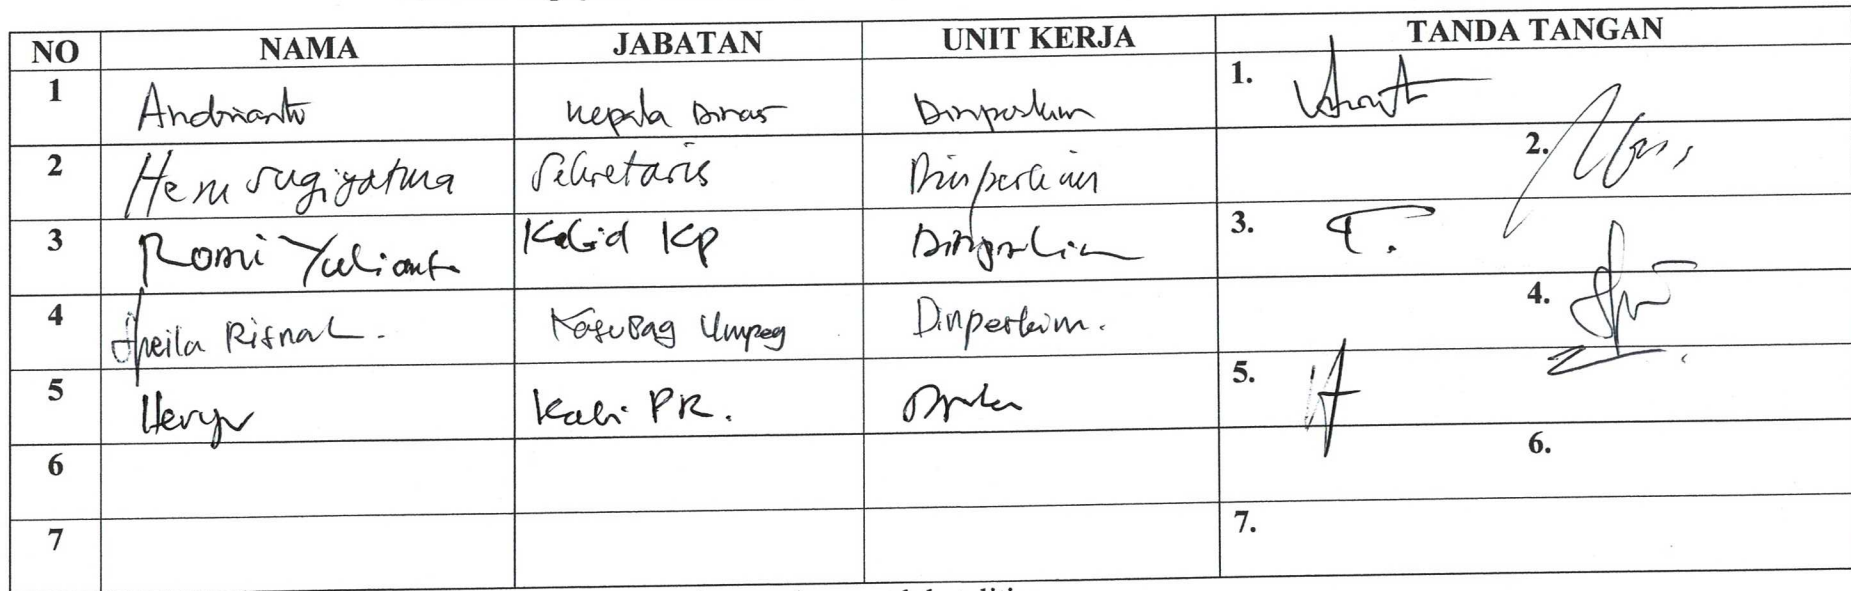 NO NAMA JABATAN UNIT KERJA TANDA TANGAN
1 Andrianto Kepala Dinas Dinperkim 1.
2 Heru Sugiyatma Sekretaris Dinperkim 2.
3 Romi Yulianto Kabid KP Dinperkim 3.
4 Sheila Risna L. Kasubag Umpeg Dinperkim. 4.
5 Kabi PR. 5.
6 6.
7 7.